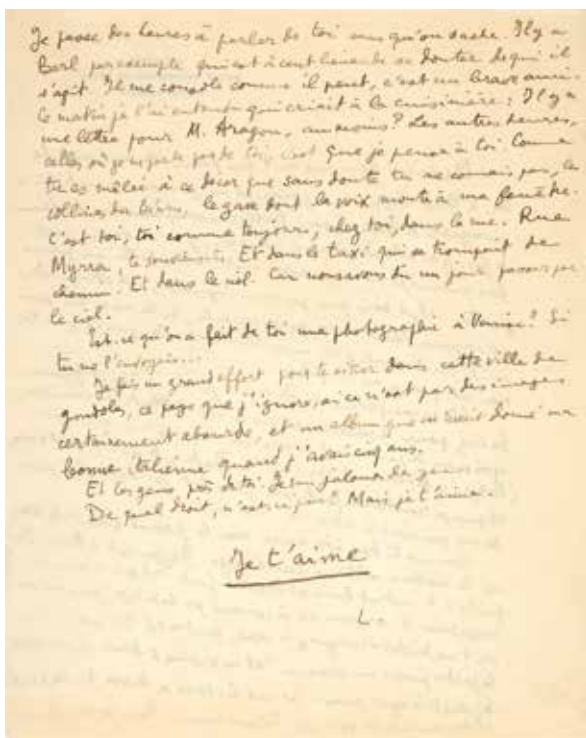 Je passe des heures à parler de toi sans qu'on sache. Il y a
Berl par exemple qui est à cent lieues de se douter de qui il
s'agit. Il me console comme il peut, c'est un brave ami :
le matin je l'ai entendu qui criait à la cuisinière : Il y a
une lettre pour M. Aragon, au moins ? Les autres heures,
celles où je ne parle pas de toi, c'est que je pense à toi. Comme
tu es mêlée à ce décor que sans doute tu ne connais pas, les
collines du la gare dont la voix monte à ma fenêtre.
C'est toi, toi comme toujours, chez toi, dans la rue. Rue
Myrra, te souviens-tu. Et dans le taxi qui se trompait de
chemin. Et dans le ciel. Car nous avons dû un jour passer par
le ciel.
Est-ce qu'on a fait de toi une photographie à Venise ? Si
tu me l'envoyais...
Je fais un grand effort pour te situer dans cette ville de
gondoles, ce pays que j'ignore, si ce n'est par des images
certainement absurdes, et un album que m'avait donné une
bonne italienne quand j'avais cinq ans.
Et les gens, près de toi. Je suis jaloux des gens
De quel droit, n'est-ce pas ? Mais je t'aime.
Je t'aime
L